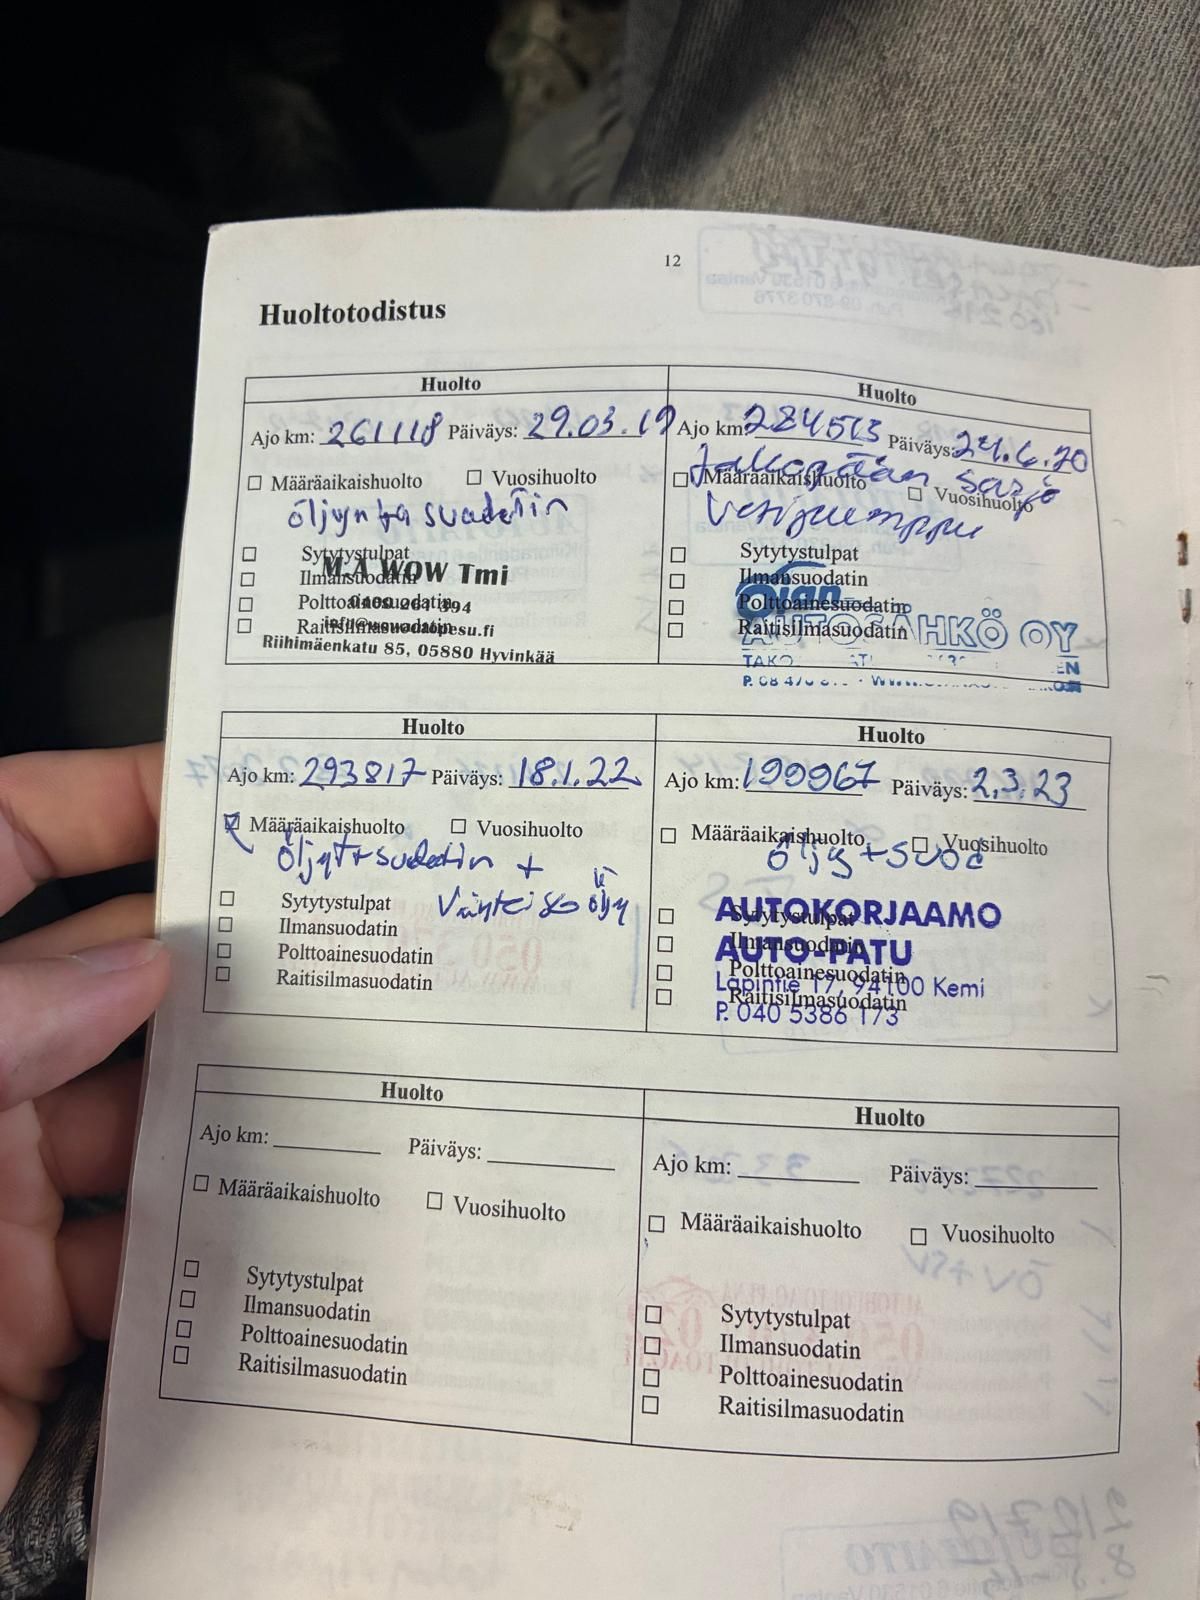 12
Huoltotodistus
Huolto
Ajo km: 261118 Päiväys: 29.03.19
Määräaikaishuolto Vuosihuolto
öljyn ta suodatin
Sytytystulpat
Ilmansuodatin
Polttoainesuodatin
Raitisilmasuodatin
M.A WOW Tmi
Riihimäenkatu 85, 05880 Hyvinkää
Huolto
Ajo km: 284513 Päiväys: 24.6.20
Jakopään sarja
Määräaikaishuolto Vuosihuolto
Vesipumppu
Sytytystulpat
Ilmansuodatin
Polttoainesuodatin
Raitisilmasuodatin
Ojan
AUTOSÄHKÖ OY
Huolto
Ajo km: 293817 Päiväys: 18.1.22
Määräaikaishuolto Vuosihuolto
öljyt + suodatin +
Vaihteisto öljy
Sytytystulpat
Ilmansuodatin
Polttoainesuodatin
Raitisilmasuodatin
Huolto
Ajo km: 199967 Päiväys: 2.3.23
Määräaikaishuolto Vuosihuolto
öljy + suod
Sytytystulpat
Ilmansuodatin
Polttoainesuodatin
Raitisilmasuodatin
AUTOKORJAAMO
AUTO-PATU
Lapintie 17, 94100 Kemi
P. 040 5386 173
Huolto
Ajo km: Päiväys:
Määräaikaishuolto Vuosihuolto
Sytytystulpat
Ilmansuodatin
Polttoainesuodatin
Raitisilmasuodatin
Huolto
Ajo km: Päiväys:
Määräaikaishuolto Vuosihuolto
Sytytystulpat
Ilmansuodatin
Polttoainesuodatin
Raitisilmasuodatin